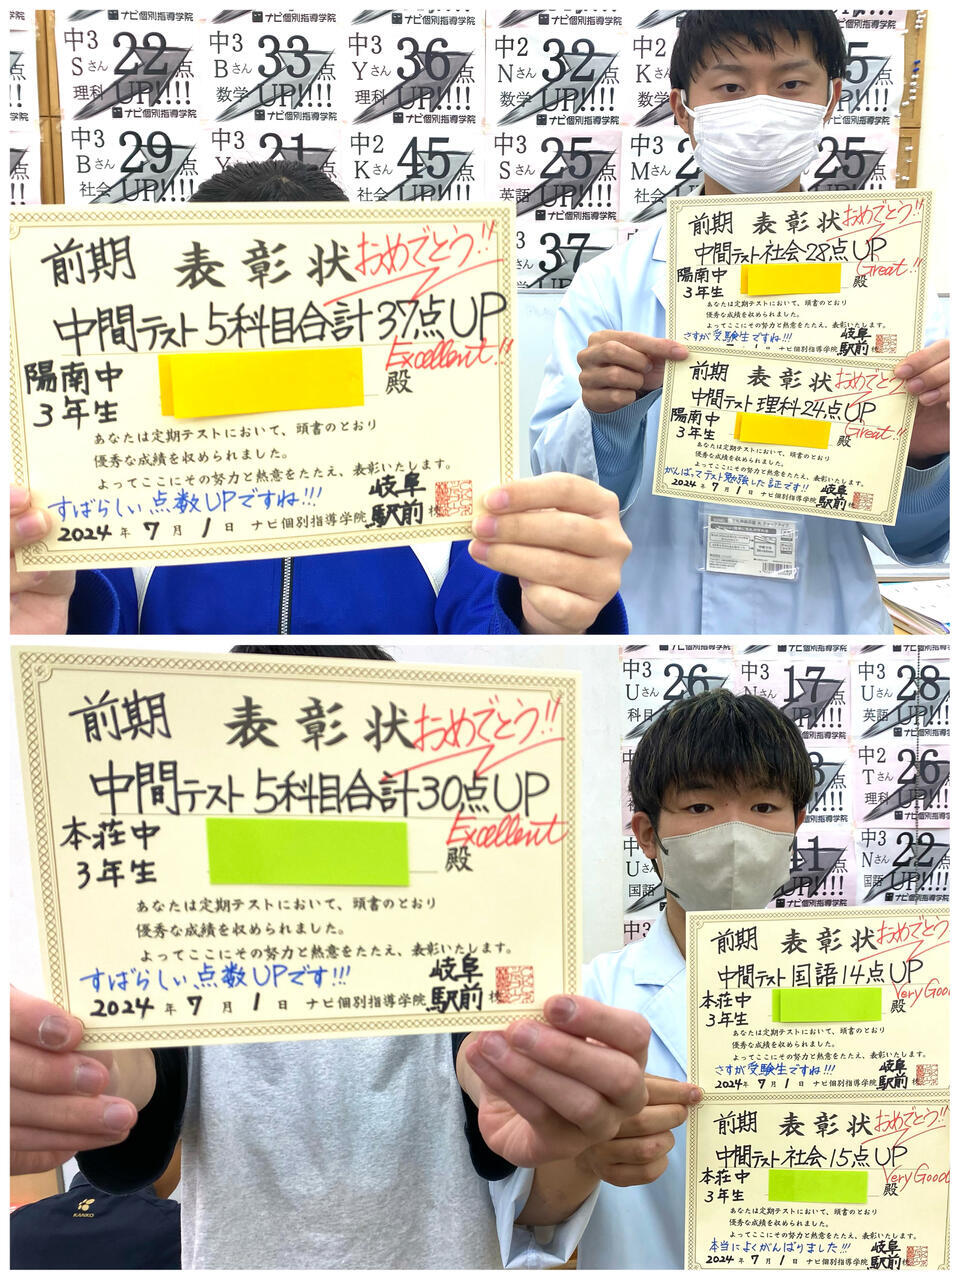 ナビ個別指導学院
中3
Sさん
理科
22点
UP!!!!
ナビ個別指導学院
中3
Bさん
数学
33点
UP!!!!
ナビ個別指導学院
中3
Yさん
理科
36点
UP!!!!
ナビ個別指導学院
中2
Nさん
数学
32点
UP!!!!
ナビ個別指導学院
中2
Kさん
5点
UP!!!!
ナビ個別指導学院
中3
Bさん
社会
29点
UP!!!!
21点
中2
Kさん
社会
45点
UP!!!!
中3
Sさん
英語
25点
UP!!!!
ナビ個別指導学院
中3
Mさん
社会
25点
37点
前期 表彰状 おめでとう!!
中間テスト 5科目合計 37点UP
Excellent!!
陽南中
3年生
殿
あなたは定期テストにおいて、頭書のとおり
優秀な成績を収められました。
よってここにその努力と熱意をたたえ、表彰いたします。
すばらしい点数UPですね!!!
2024年 7月 1日 ナビ個別指導学院 岐阜駅前校
前期 表彰状 おめでとう!!
中間テスト 社会 28点UP
Great!!
陽南中
3年生
殿
あなたは定期テストにおいて、頭書のとおり
優秀な成績を収められました。
よってここにその努力と熱意をたたえ、表彰いたします。
さすが受験生ですね!!!
1日 ナビ個別指導学院 岐阜駅前校
前期 表彰状 おめでとう
中間テスト 理科 24点UP
Great!!
陽南中
3年生
殿
あなたは定期テストにおいて、頭書のとおり
優秀な成績を収められました。
よってここにその努力と熱意をたたえ、表彰いたします。
がんばってテスト勉強した証です!!
2024年 7月 1日 ナビ個別指導学院 岐阜駅前校
ナビ個別指導学院
中3
Uさん
科目
26点
中3
Nさん
17点
中3
Uさん
英語
28点
UP!!!!
ナビ個別指導学院
中2
Tさん
理科
26点
UP!!!!
ナビ個別指導学院
Uさん
国語
41点
UP!!!!
中3
Nさん
国語
22点
UP!!!!
ナビ個別指導学院
前期 表彰状 おめでとう!!
中間テスト 5科目合計 30点UP
Excellent
本荘中
3年生
殿
あなたは定期テストにおいて、頭書のとおり
優秀な成績を収められました。
よってここにその努力と熱意をたたえ、表彰いたします。
すばらしい点数UPです!!!
2024年 7月 1日 ナビ個別指導学院 岐阜駅前校
KANKO
前期 表彰状 おめでとう
中間テスト 国語 14点UP
Very Good
本荘中
3年生
殿
あなたは定期テストにおいて、頭書のとおり
優秀な成績を収められました。
よってここにその努力と熱意をたたえ、表彰いたします。
さすが受験生ですね!!!
2024年 7月 1日 ナビ個別指導学院 岐阜駅前校
前期 表彰状 おめでとう!!
中間テスト 社会 15点UP
Very Good
本荘中
3年生
殿
あなたは定期テストにおいて、頭書のとおり
優秀な成績を収められました。
よってここにその努力と熱意をたたえ、表彰いたします。
本当によくがんばりました!!!
2024年 7月 1日 ナビ個別指導学院 岐阜駅前